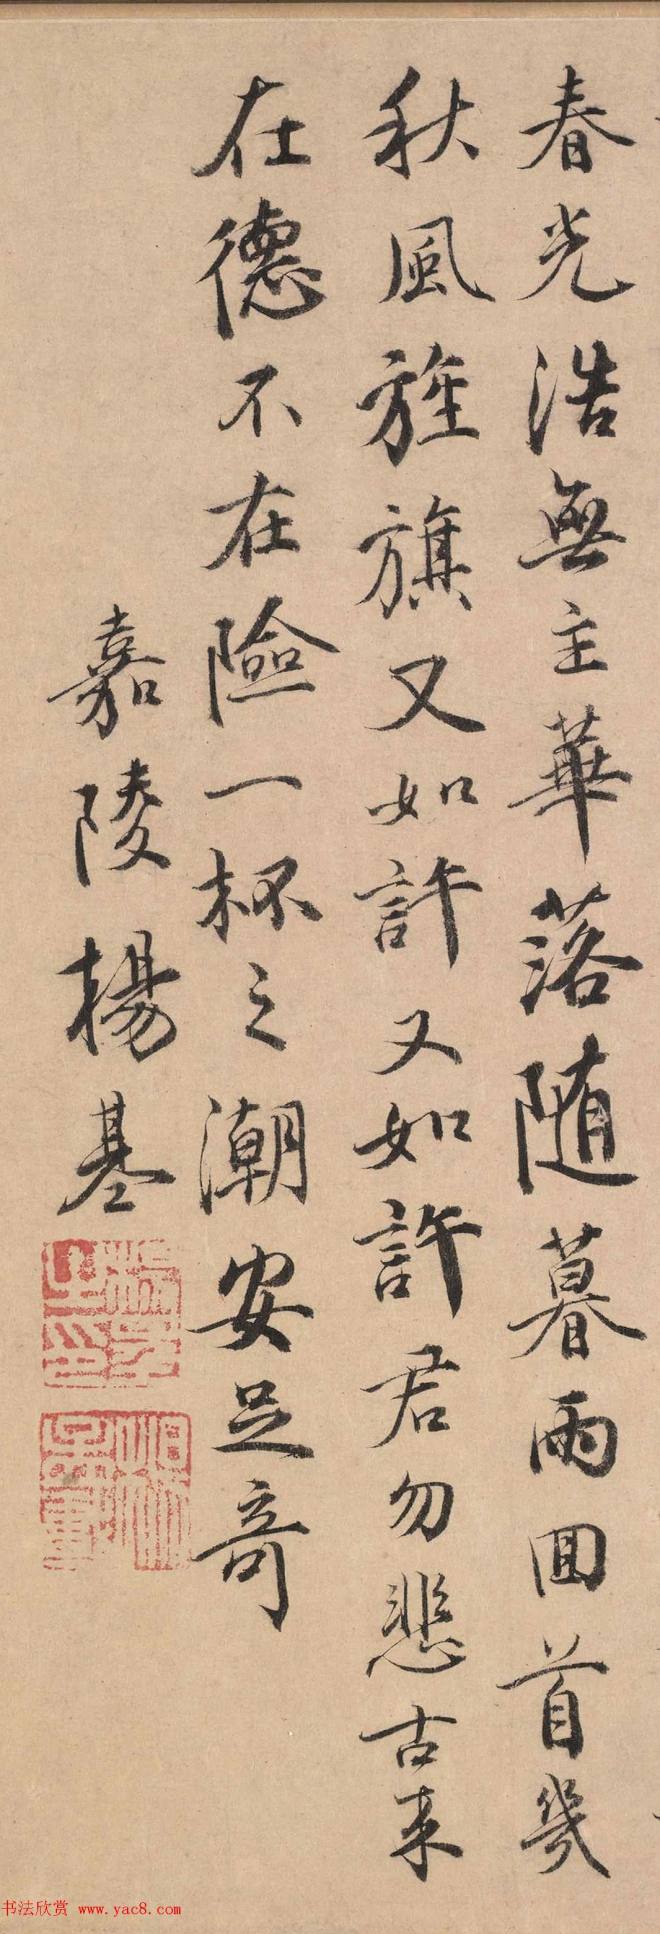 春光浩無主華落随暮雨囬首幾
秋風旌旗又如許又如許君勿悲古来
在德不在險一杯之潮安足奇
嘉陵楊基
书法欣赏 www.yac8.com